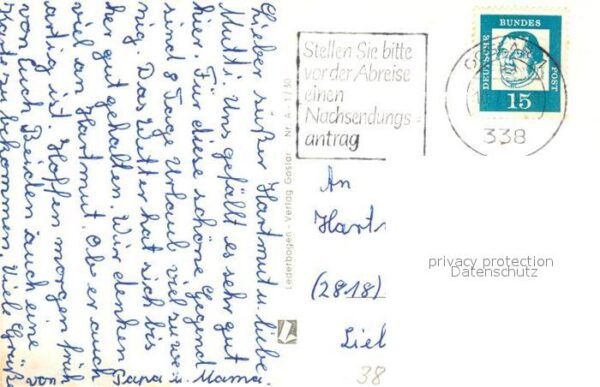 Lieber süßer Hartmut u. liebe
Mutti. Uns gefällt es sehr gut
hier. Für diese schöne Gegend
sind 8 Tage Urlaub viel zu we-
nig. Das Wetter hat sich bis-
her gut gehalten. Wir denken
viel an Hartmut. Ob er auch
artig ist. Hoffen morgen früh
von Euch Beiden auch eine
Karte zu bekommen. Viele Grüße
von Papa u. Mama.
Lederbogen - Verlag Goslar Nr. A - 1/30
Stellen Sie bitte
vor der Abreise
einen
Nachsendungs-
antrag
338
DEUTSCHE
BUNDES
POST
15
An
Hart
(2818)
Liel
38
privacy protection
Datenschutz